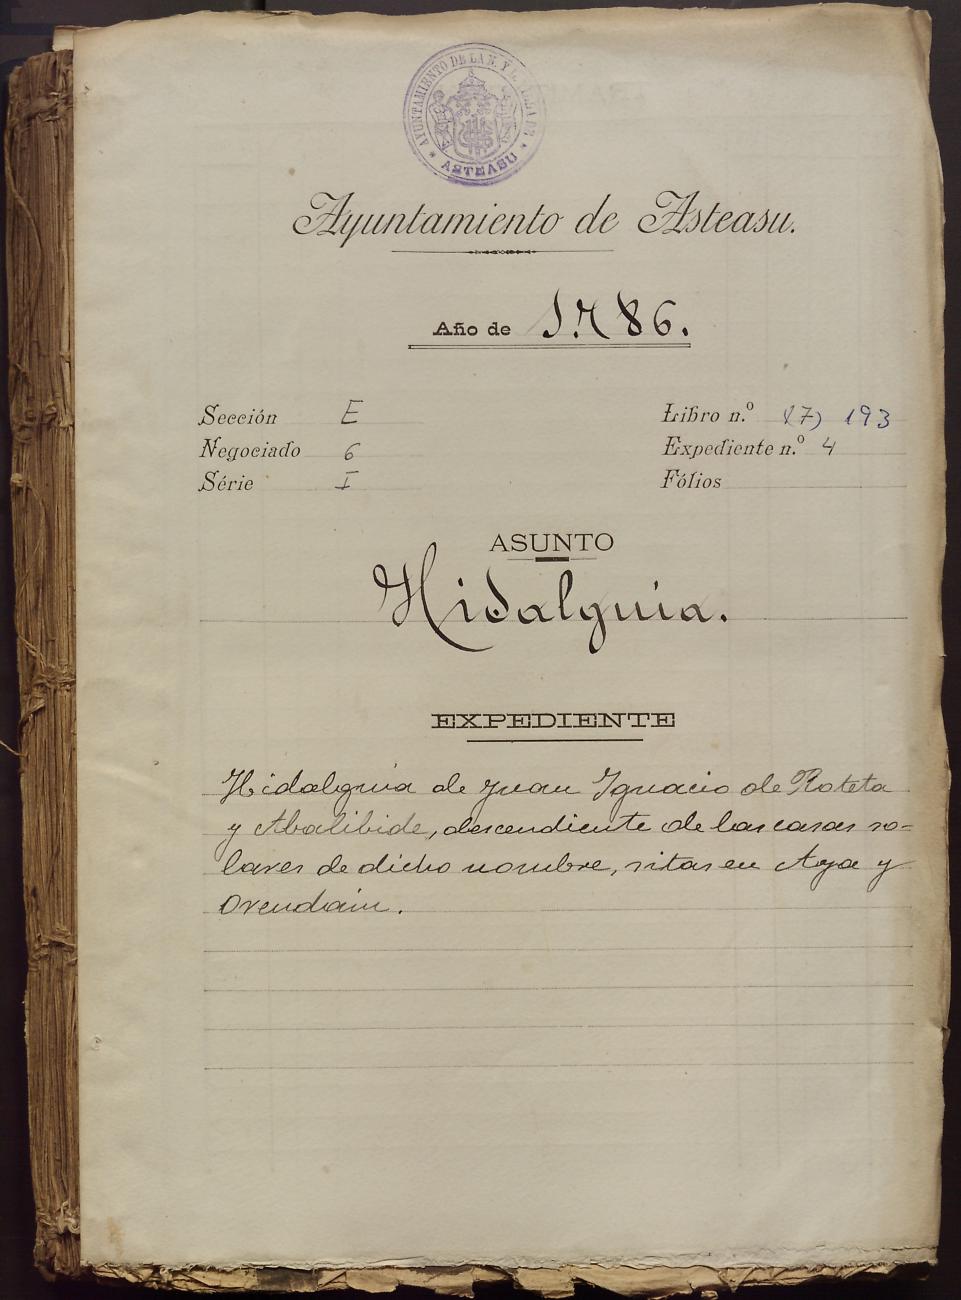 AYUNTAMIENTO DE LA N. Y L. VILLA DE
* ASTEASU *
Ayuntamiento de Asteasu.
Año de 1.786.
Sección E
Negociado 6
Série I
Libro n.º 193
Expediente n.º 4
Fólios
ASUNTO
Hidalguia.
EXPEDIENTE
Hidalguia de Juan Ignacio de Roteta
y Abalibide, descendiente de las casas so-
lares de dicho nombre, sitas en Aya y
Orendain.